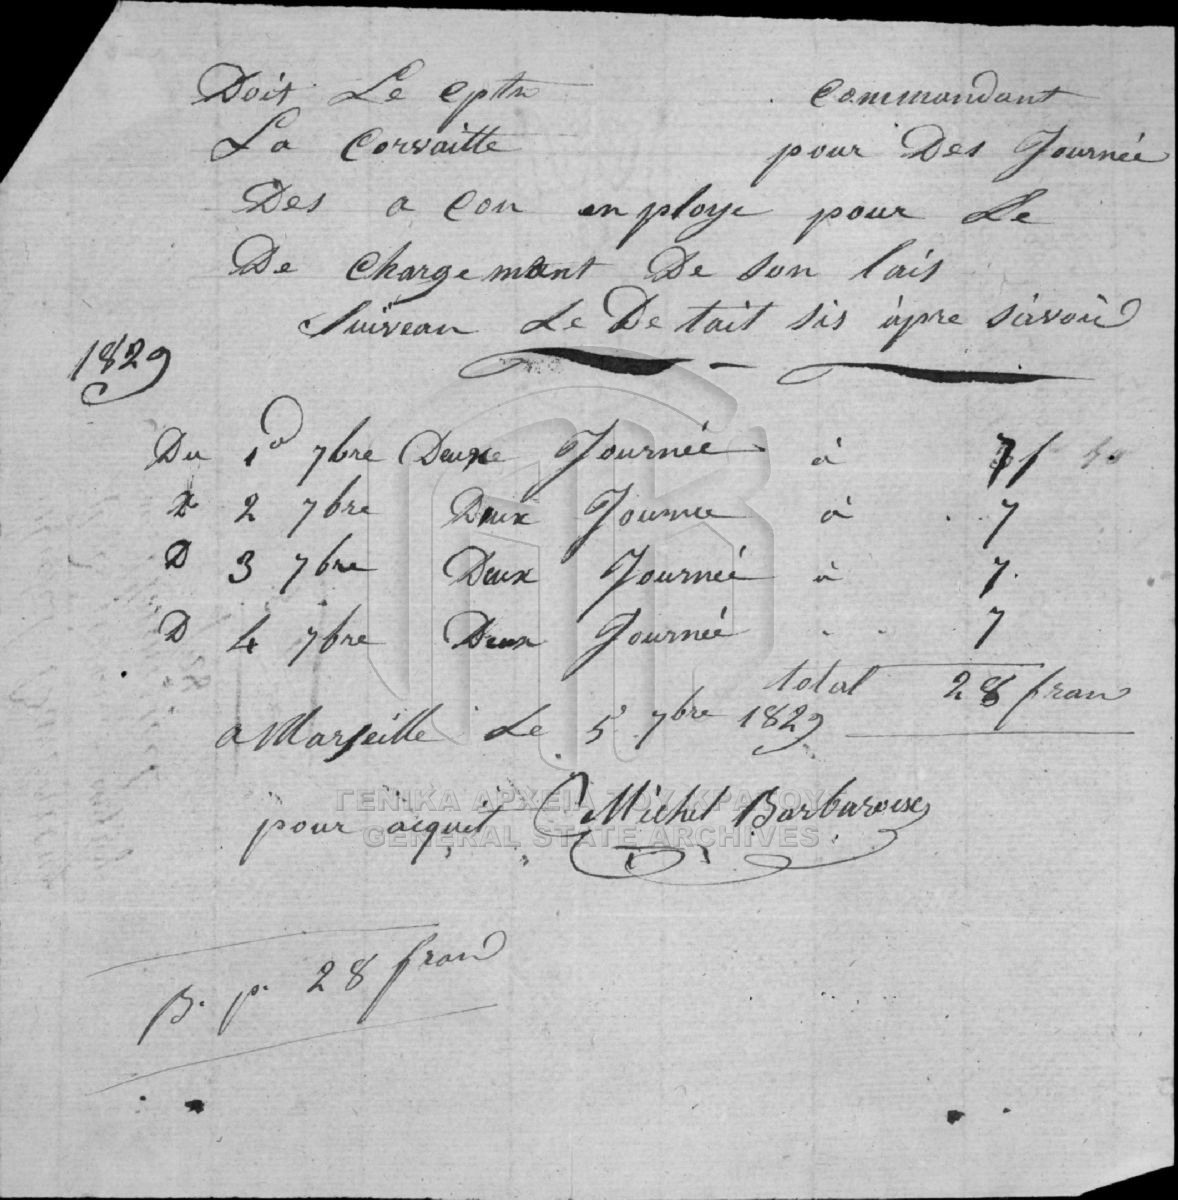 Doit Le Cptn commandant
La Corvaitte pour Des Journée
Des a Con employe pour Le
De chargemant De son lais
Suivean Le De tait sis àpre sàvoir
1829
Du 1o 7bre Deuxe Journée à 7f
D 2 7bre Deux Journee à 7
D 3 7bre Deux Journeé à 7
D 4 7bre Deux Journeé 7
total 28 fran
a Marseille Le 5 7bre 1829
ΓΕΝΙΚΑ ΑΡΧΕΙΑ ΤΟΥ ΚΡΑΤΟΥΣ
pour acquit Michel Barbaroux
GENERAL STATE ARCHIVES
B. p. 28 fran